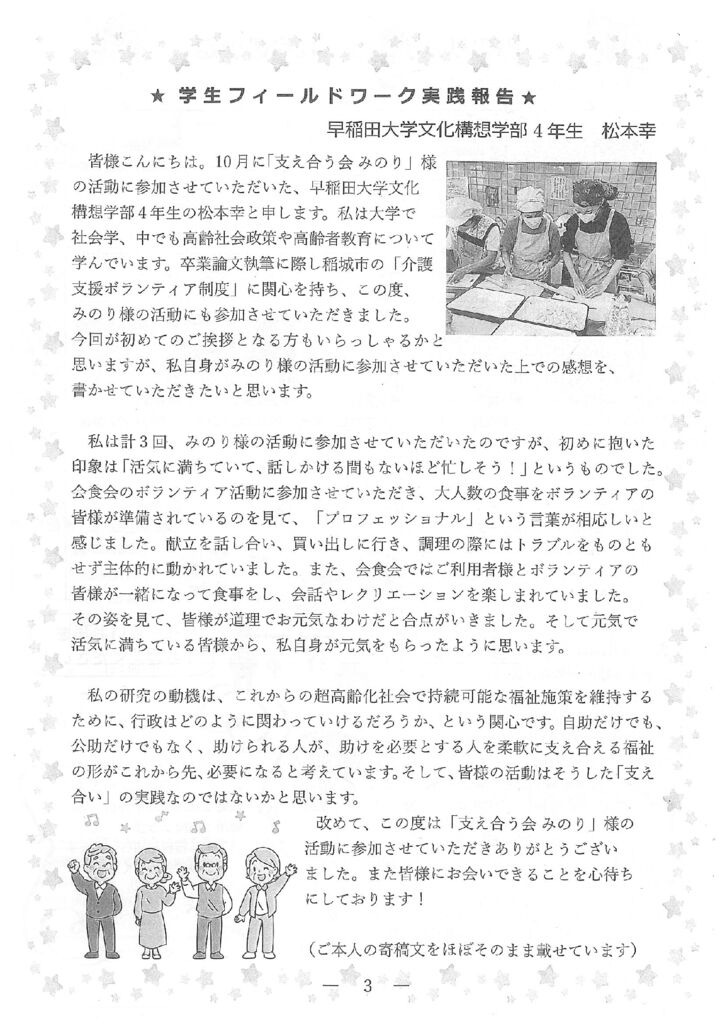 ★ 学生フィールドワーク実践報告★
早稲田大学文化構想学部4年生　松本幸
皆様こんにちは。10月に「支え合う会 みのり」様
の活動に参加させていただいた、早稲田大学文化
構想学部4年生の松本幸と申します。私は大学で
社会学、中でも高齢社会政策や高齢者教育について
学んでいます。卒業論文執筆に際し稲城市の「介護
支援ボランティア制度」に関心を持ち、この度、
みのり様の活動にも参加させていただきました。
今回が初めてのご挨拶となる方もいらっしゃるかと
思いますが、私自身がみのり様の活動に参加させていただいた上での感想を、
書かせていただきたいと思います。
私は計3回、みのり様の活動に参加させていただいたのですが、初めに抱いた
印象は「活気に満ちていて、話しかける間もないほど忙しそう！」というものでした。
会食会のボランティア活動に参加させていただき、大人数の食事をボランティアの
皆様が準備されているのを見て、「プロフェッショナル」という言葉が相応しいと
感じました。献立を話し合い、買い出しに行き、調理の際にはトラブルをものとも
せず主体的に動かれていました。また、会食会ではご利用者様とボランティアの
皆様が一緒になって食事をし、会話やレクリエーションを楽しまれていました。
その姿を見て、皆様が道理でお元気なわけだと合点がいきました。そして元気で
活気に満ちている皆様から、私自身が元気をもらったように思います。
私の研究の動機は、これからの超高齢化社会で持続可能な福祉施策を維持する
ために、行政はどのように関わっていけるだろうか、という関心です。自助だけでも、
公助だけでもなく、助けられる人が、助けを必要とする人を柔軟に支え合える福祉
の形がこれから先、必要になると考えています。そして、皆様の活動はそうした「支え
合い」の実践なのではないかと思います。
改めて、この度は「支え合う会 みのり」様の
活動に参加させていただきありがとうござい
ました。また皆様にお会いできることを心待ち
にしております！
（ご本人の寄稿文をほぼそのまま載せています）
— 3 —